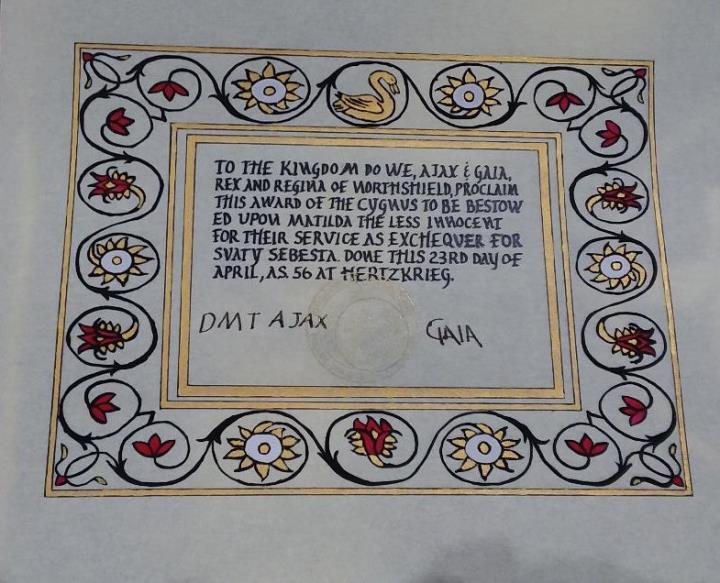 TO THE KINGDOM DO WE, AJAX & GAIA,
REX AND REGINA OF NORTHSHIELD, PROCLAIM
THIS AWARD OF THE CYGNUS TO BE BESTOW
ED UPON MATILDA THE LESS INNOCENT
FOR THEIR SERVICE AS EXCHEQUER FOR
SVATY SEBESTA. DONE THIS 23RD DAY OF
APRIL, A.S. 56 AT HERTZKRIEG.
DMT AJAX GAIA